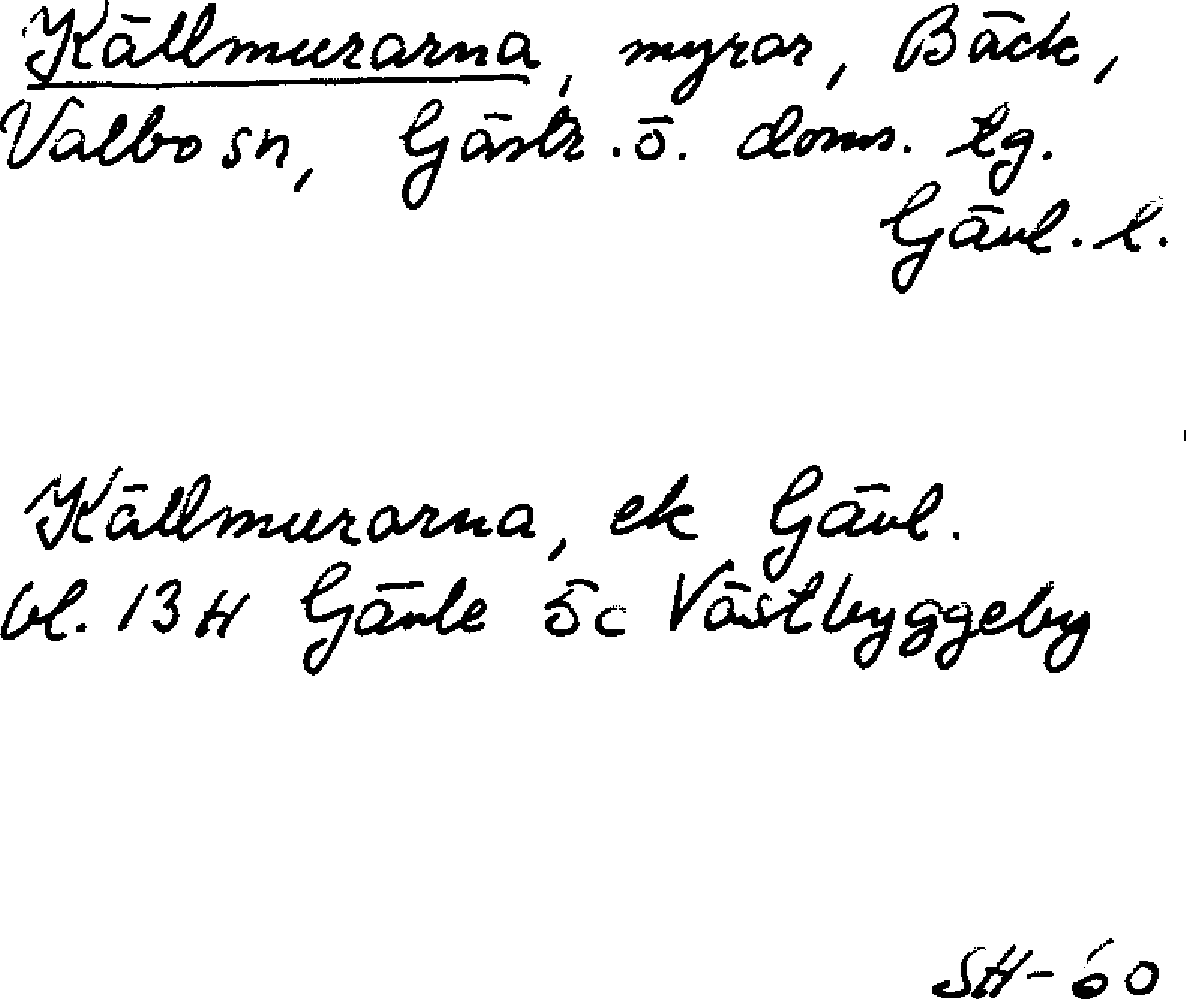 Källmurarna, myrar, Bäck,
Valbo sn, Gästr. ö. doms. tg.
Gävl. l.
Källmurarna, ek Gävl.
bl. 13 H Gävle öc Västbyggeby
SH-60